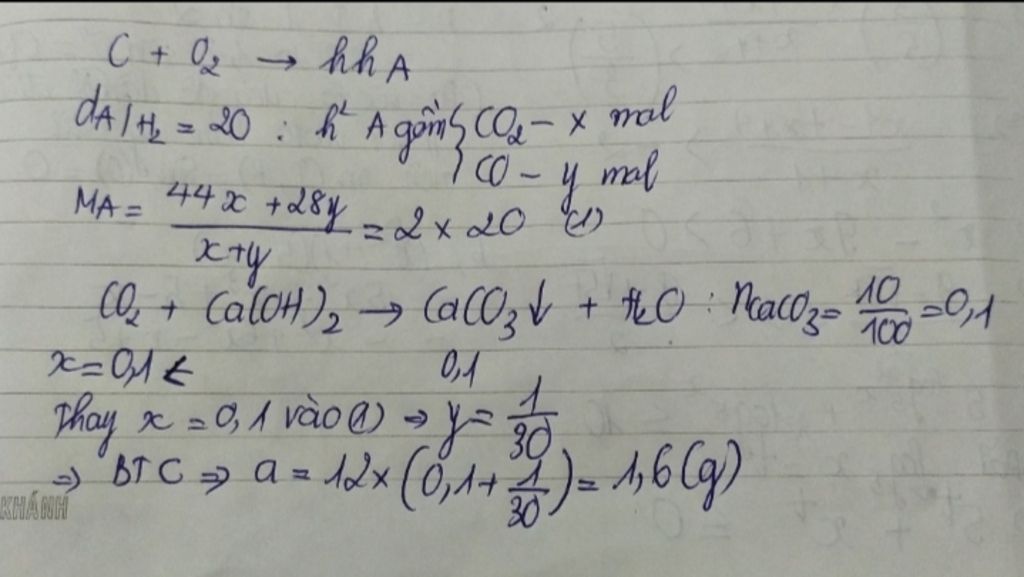 C + O₂ → hh A
dA/H₂ = 20 : h² A gồm { CO₂ – x mol
CO – y mol
MA = (44x + 28y)/(x+y) = 2 × 20 (1)
CO₂ + Ca(OH)₂ → CaCO₃↓ + H₂O : nCaCO₃ = 10/100 = 0,1
x = 0,1 ← 0,1
Thay x = 0,1 vào (1) → y = 1/30
⇒ BTC ⇒ a = 12 × (0,1 + 1/30) = 1,6 (g)
KHÁNH